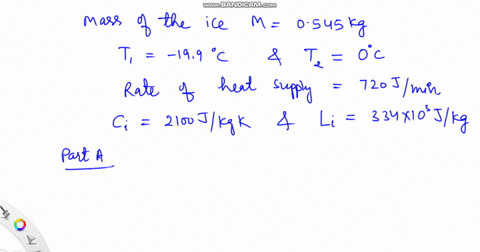 WWW.BANDICAM.COM
Mass of the ice M = 0.545 kg
T₁ = -19.9 °C & Tₑ = 0°C
Rate of heat supply = 720 J/min
Cᵢ = 2100 J/kg K & Lᵢ = 334×10³ J/kg
Part A